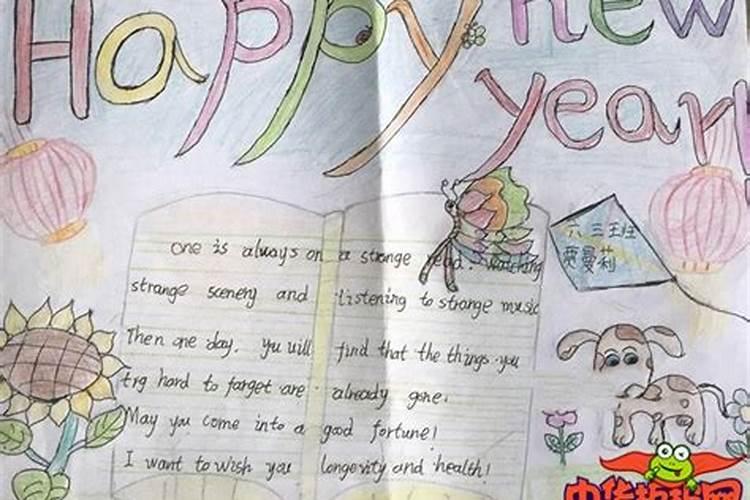 Happy new
year!
one is always on a stronge read. watching
strange scenery and listening to stronge music
Then one day. you will find that the things you
try hard to forget are already gone.
May you come into a good fortune!
I want to wish you longevity and health!
六三王班
曼莉